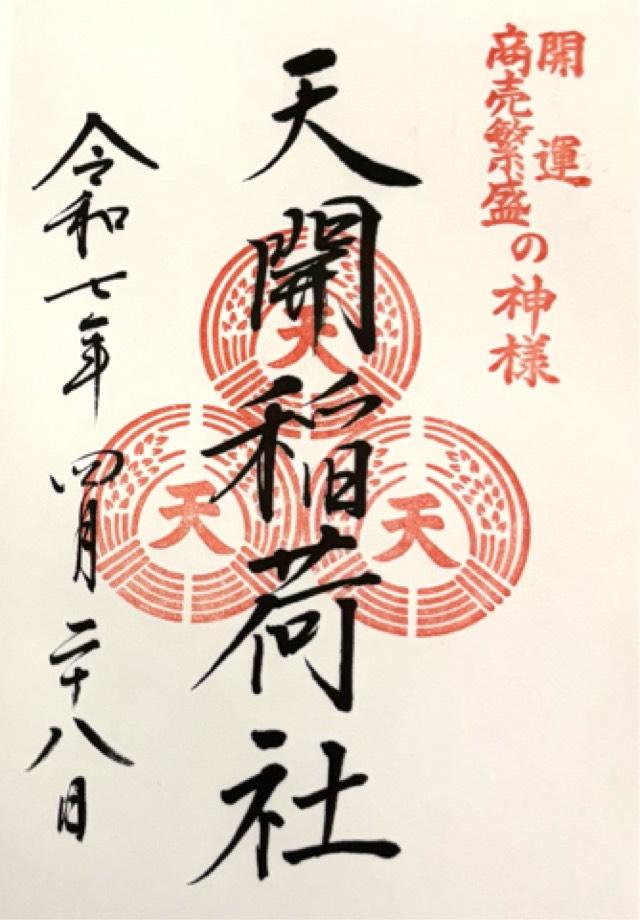 開運
商売繁盛の神様
天開稲荷社
天
天
天
令和七年 四月二十八日